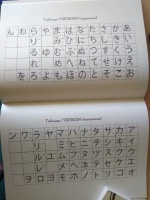 Таблица ГОДЗЮОН (хирагана)
ん わ ら や ま は な た さ か あ
り み ひ に ち し き い
る ゆ む ふ ぬ つ す く う
れ め へ ね て せ け え
を ろ よ も ほ の と そ こ お
Таблица ГОДЗЮОН (катакана)
ン ワ ラ ヤ マ ハ ナ タ サ カ ア
リ ミ ヒ ニ チ シ キ イ
ル ユ ム フ ヌ ツ ス ク ウ
レ メ ヘ ネ テ セ ケ エ
ヲ ロ ヨ モ ホ ノ ト ソ コ オ